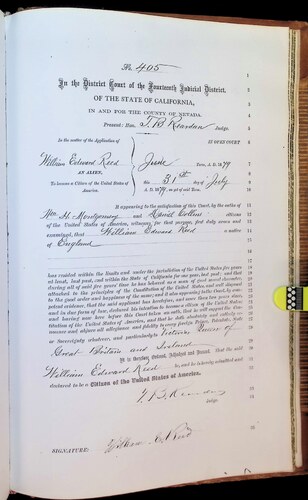 No. 405
In the District Court of the Fourteenth Judicial District,
OF THE STATE OF CALIFORNIA,
IN AND FOR THE COUNTY OF NEVADA.
Present: Hon. T. B. Reardan Judge.
In the matter of the Application of
IN OPEN COURT
William Edward Reed
June Term, A. D. 1879
AN ALIEN,
To become a Citizen of the United States of America.
this 31st day of July
A. D. 1879
It appearing to the satisfaction of this Court, by the oaths of
Wm. H. Montgomery and David Collins citizens
of the United States of America, witnesses for that purpose, first duly sworn and
examined, that William Edward Reed a native
of England
has resided within the limits and under the jurisdiction of the United States five years
at least, last past, and within the State of California for one year, last past; and that
during all of said five years' time he has behaved as a man of good moral character,
attached to the principles of the Constitution of the United States, and well disposed
to the good order and happiness of the same; and it also appearing to the Court, by com-
petent evidence, that the said applicant has heretofore, and more than two years since,
and in due form of law, declared his intention to become a citizen of the United States
and having now here before this Court taken an oath, that he will support the Consti-
tution of the United States of America, and that he doth absolutely and entirely re-
nounce and abjure all allegiance and fidelity to every foreign Prince, Potentate, State
or Sovereignty whatever, and particularly to Victoria Queen of
Great Britain and Ireland
It is therefore Ordered, Adjudged and Decreed, That the said
William Edward Reed be, and is hereby admitted and
declared to be a Citizen of the United States of America.
T. B. Reardan
Judge.
SIGNATURE: William E. Reed